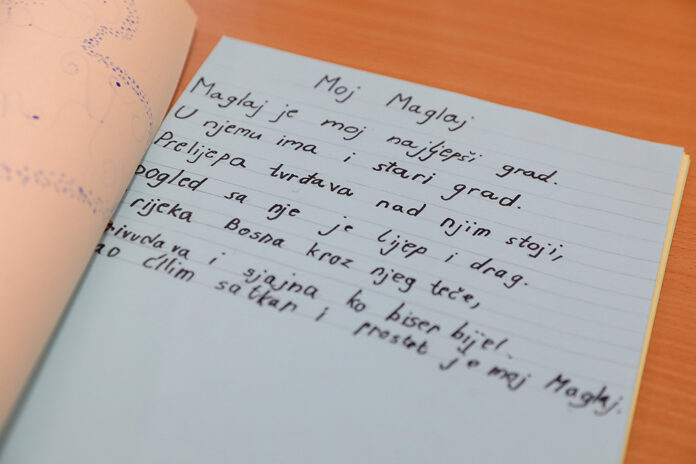 Moj Maglaj
Maglaj je moj najljepši grad.
U njemu ima i stari grad.
Prelijepa tvrđava nad njim stoji,
pogled sa nje je lijep i drag.
rijeka Bosna kroz njeg teče,
i sjajna ko biser bijel.
ćilim satkan i prostrt je moj Maglaj.